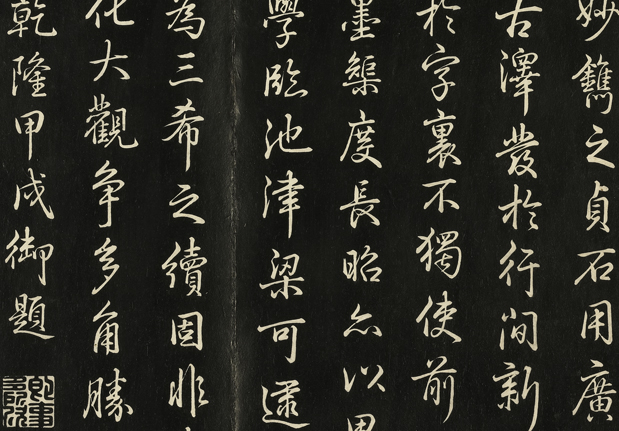 妙鐫之貞石用廣
古澤發於行間新
於字裏不獨使前
墨榘度長昭亦以
學臨池津梁可逮
為三希之續固非
化大觀爭多角勝
乾隆甲戌御題